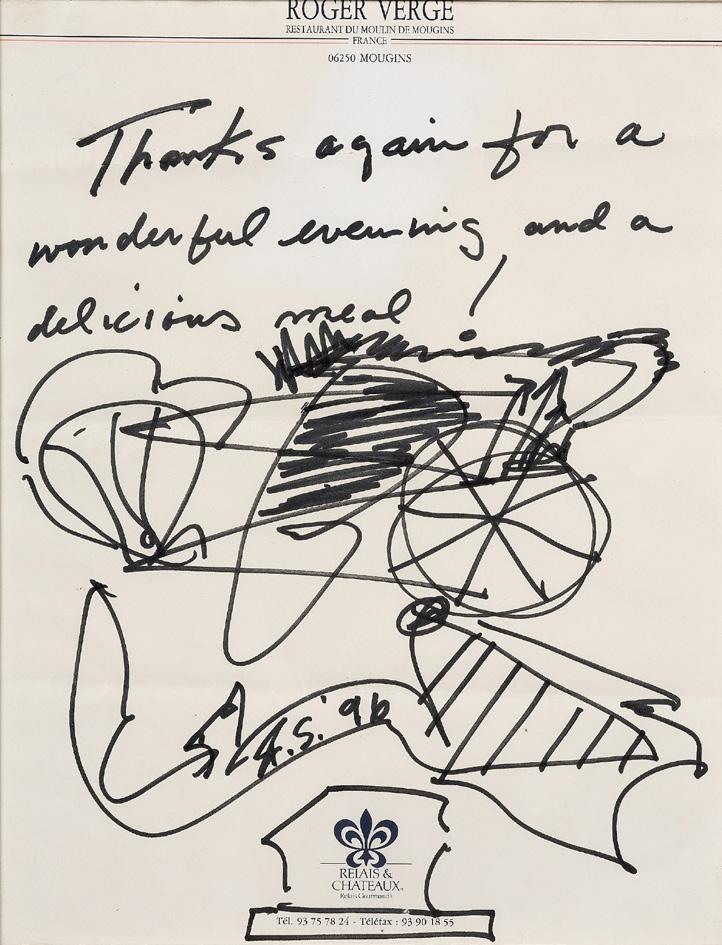 ROGER VERGE
RESTAURANT DU MOULIN DE MOUGINS
FRANCE
06250 MOUGINS
Thanks again for a
wonderful evening and a
delicious meal!
A.S. '96
RELAIS &
CHATEAUX®
Relais Gourmands
Tél. 93 75 78 24 - Téléfax : 93 90 18 55